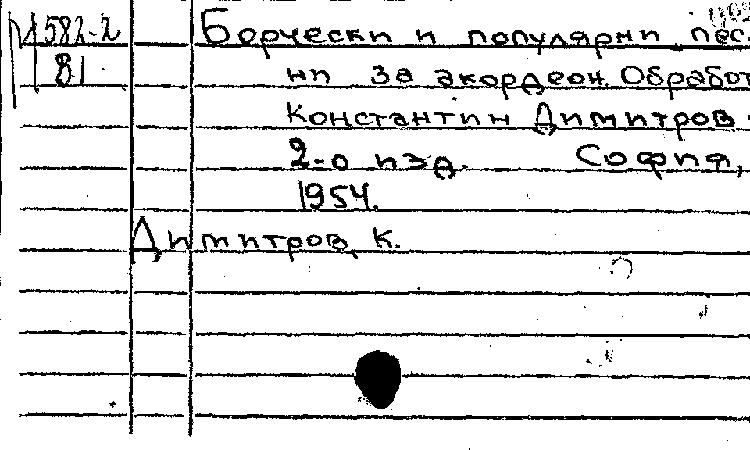 1582-2
81
Борчески и популярни пес-
ни за акордеон. Обработ
Константин Димитров
2-о изд. София,
1954.
Димитров, К.